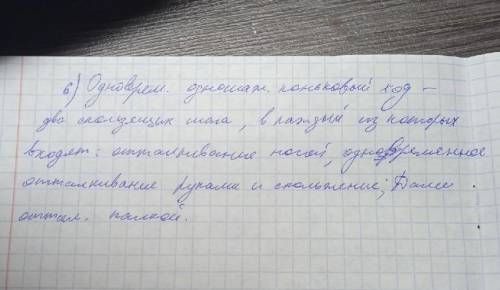 6) Одноврем. одношаж. коньковый ход –
два скользящих шага, в каждый из которых
входят: отталкивание ногой, одновременное
отталкивание руками и скольжение; Далее
оттал. палкой.